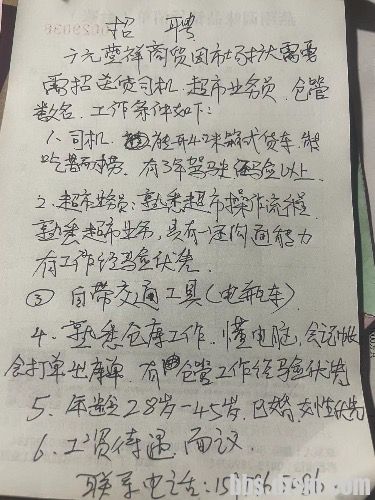 招 聘
广元萱祥商贸因市场扩大需要
需招送货司机、超市业务员、仓管
数名、工作条件如下:
1、司机、能开4.2米箱式货车、能
吃苦耐劳、有3年驾驶经验以上
2、超市业务员:熟悉超市操作流程
熟悉超市业务,具有一定沟通能力
有工作经验优先
③ 自带交通工具(电瓶车)
4、熟悉仓库工作、懂电脑、会记帐
会打单出库单、有仓管工作经验优待
5、年龄28岁-45岁、已婚、女性优先
6、工资待遇、面议
联系电话: